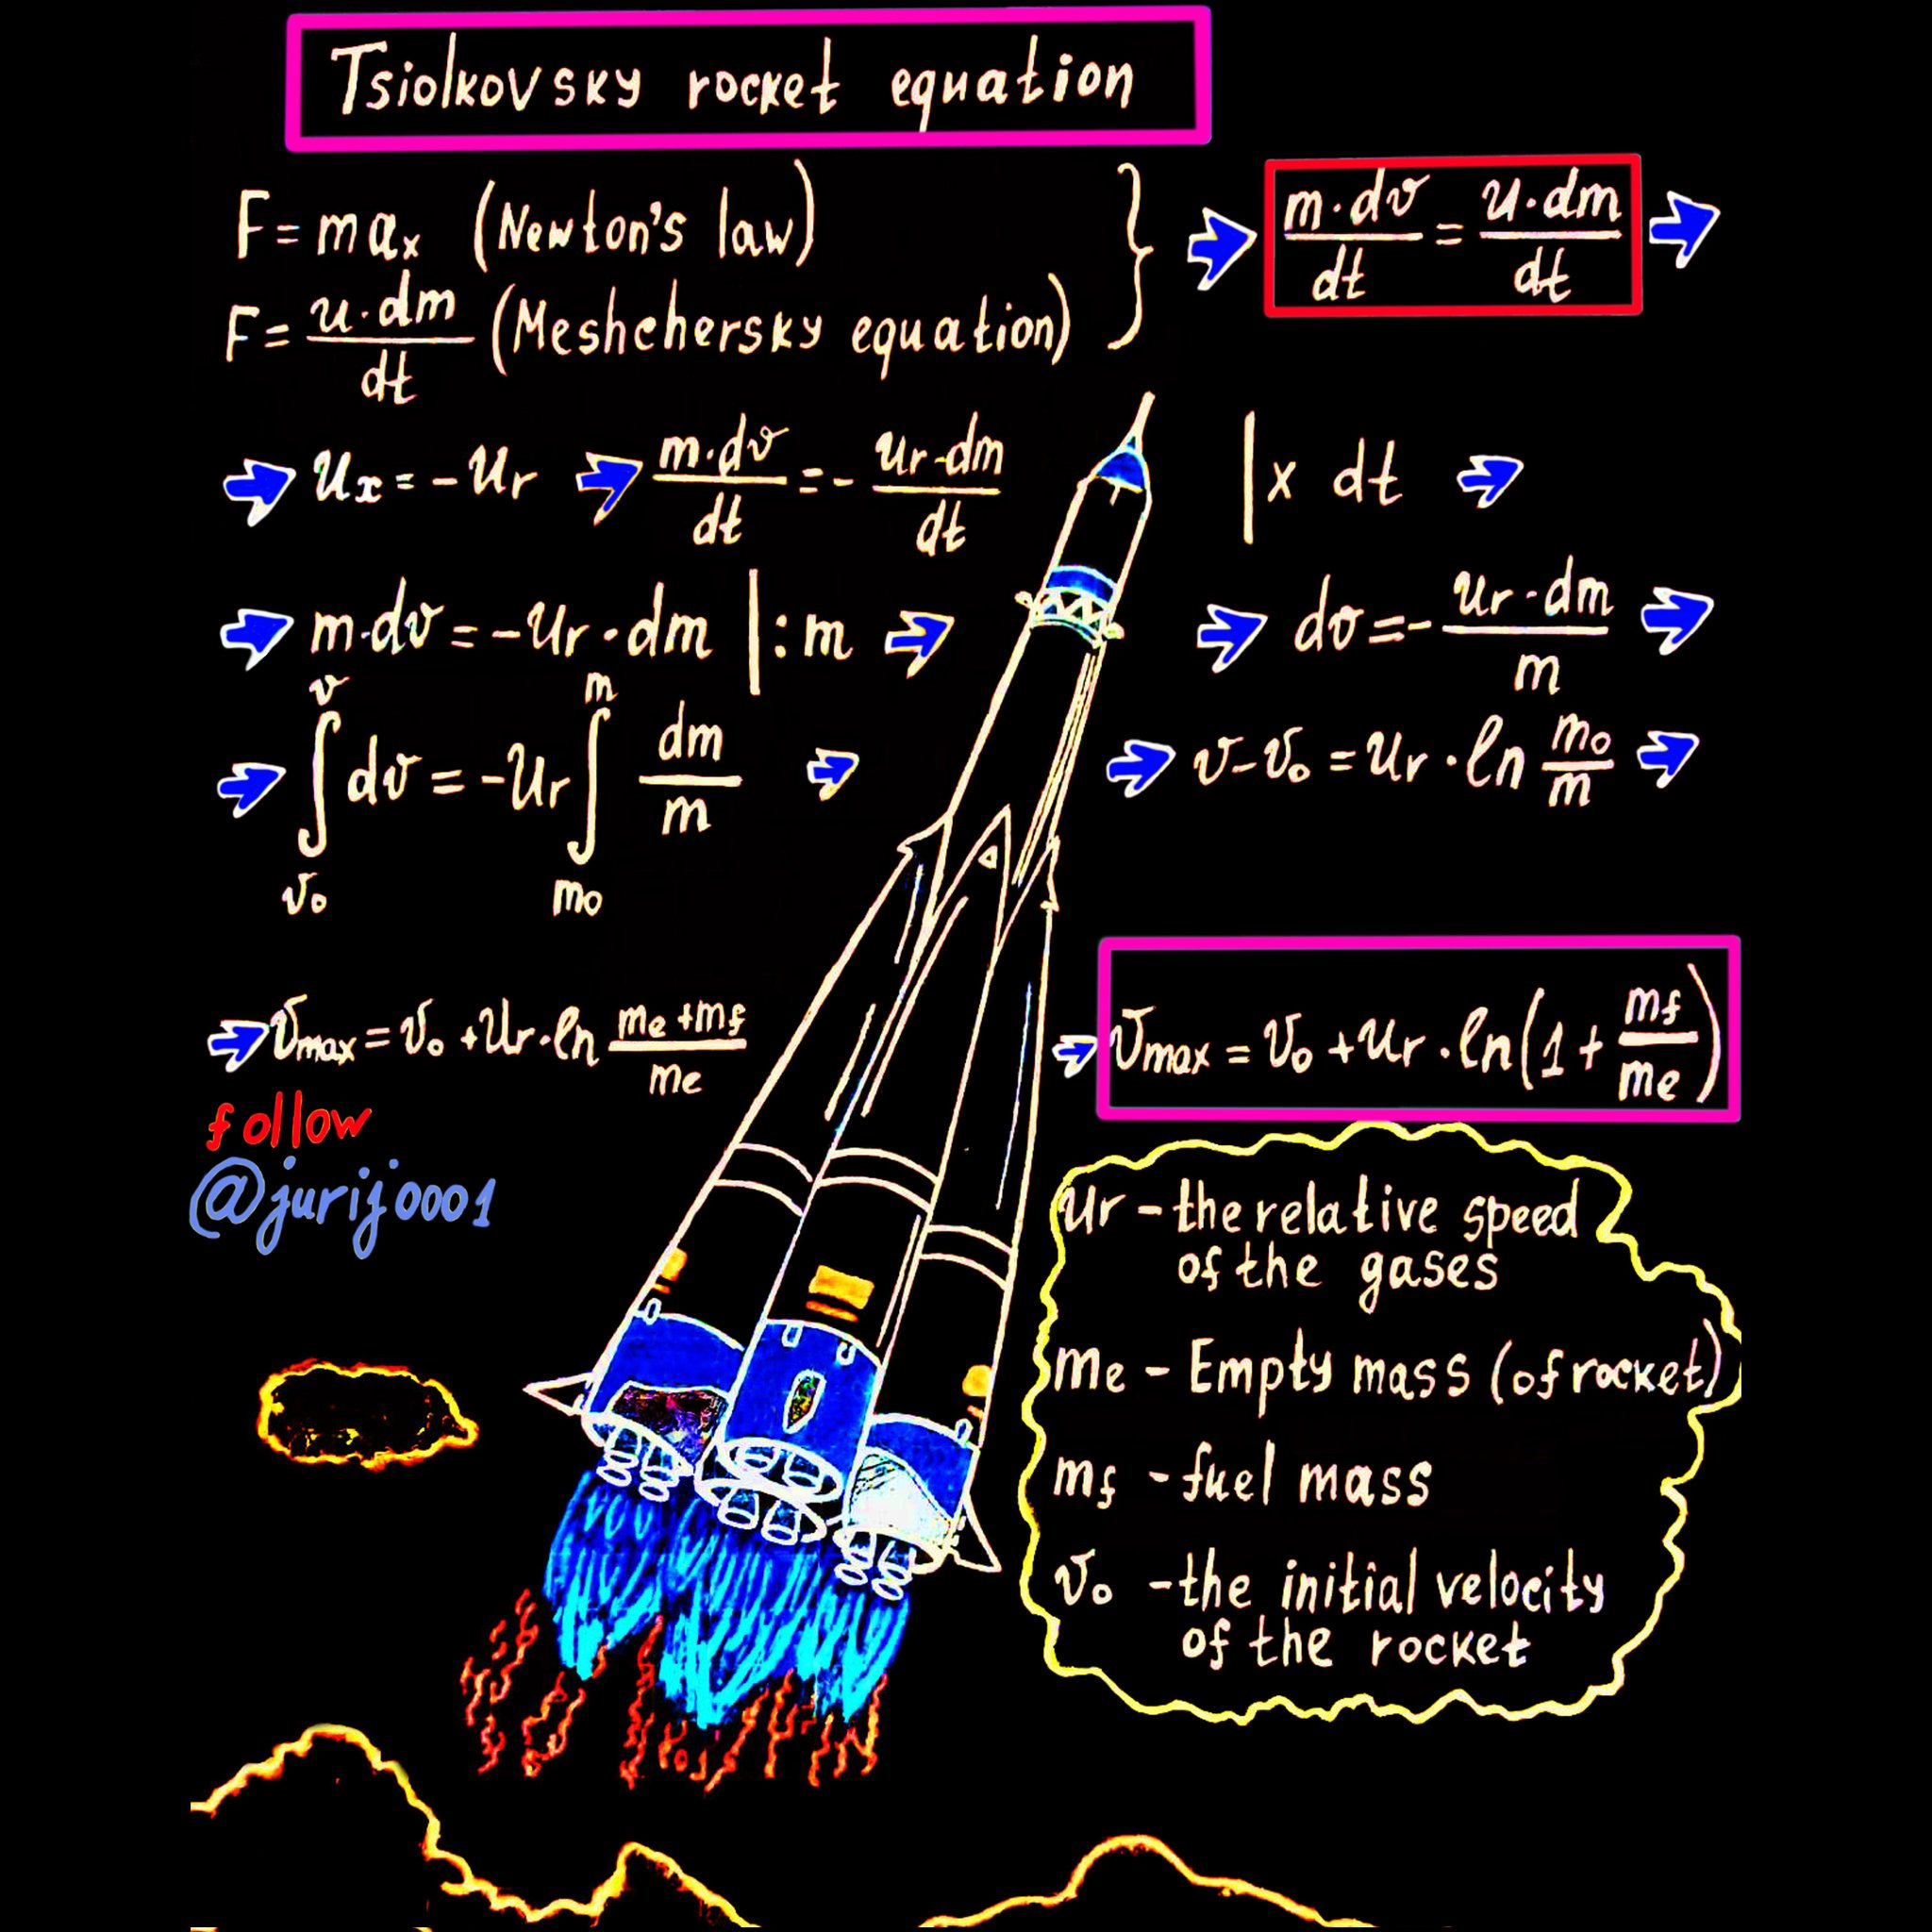 Tsiolkovsky rocket equation
F = maₓ (Newton's law)
F = u·dm/dt (Meshchersky equation)
} ⇒ m·dv/dt = u·dm/dt ⇒
⇒ uₓ = -uᵣ ⇒ m·dv/dt = - uᵣ·dm/dt | x dt ⇒
⇒ m·dv = -uᵣ·dm | : m ⇒ dv = - uᵣ·dm/m ⇒
⇒ ∫ᵥ₀ᵛ dv = -uᵣ ∫ₘ₀ᵐ dm/m ⇒ v-v₀ = uᵣ·ln m₀/m ⇒
⇒ vmax = v₀ + uᵣ·ln (me + mf)/me ⇒ vmax = v₀ + uᵣ·ln(1 + mf/me)
follow
@jurij0001
ur - the relative speed
of the gases
me - Empty mass (of rocket)
mf - fuel mass
v₀ - the initial velocity
of the rocket